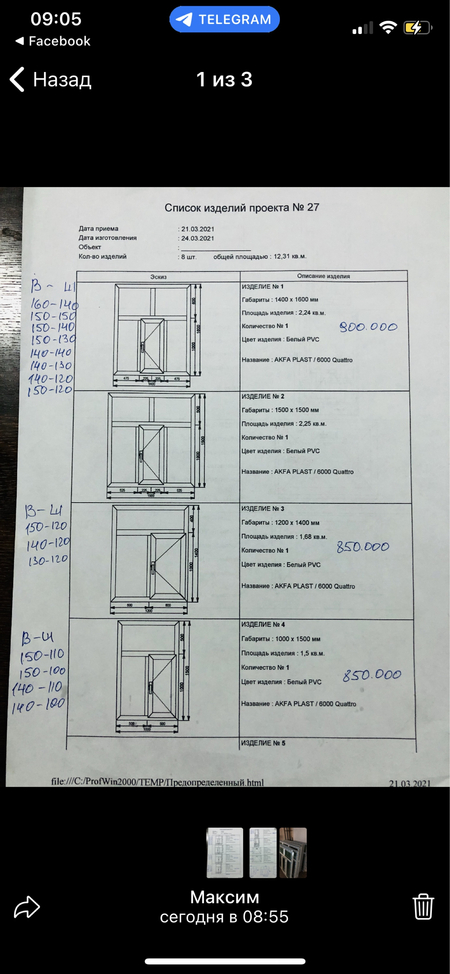 09:05
TELEGRAM
Facebook
Назад
1 из 3
Список изделий проекта № 27
Дата приема : 21.03.2021
Дата изготовления : 24.03.2021
Объект :
Кол-во изделий : 8 шт. общей площадью : 12,31 кв.м.
Эскиз Описание изделия
В - Ш
160-140
150-150
150-140
150-130
140-140
140-130
140-120
150-120
ИЗДЕЛИЕ № 1
Габариты : 1400 x 1600 мм
Площадь изделия : 2,24 кв.м.
Количество № 1
900.000
Цвет изделия : Белый PVC
Название : AKFA PLAST / 6000 Quattro
ИЗДЕЛИЕ № 2
Габариты : 1500 x 1500 мм
Площадь изделия : 2,25 кв.м.
Количество № 1
Цвет изделия : Белый PVC
Название : AKFA PLAST / 6000 Quattro
В - Ш
150-120
140-120
130-120
ИЗДЕЛИЕ № 3
Габариты : 1200 x 1400 мм
Площадь изделия : 1,68 кв.м.
Количество № 1
850.000
Цвет изделия : Белый PVC
Название : AKFA PLAST / 6000 Quattro
В-Ш
150-110
150-100
140-110
140-100
ИЗДЕЛИЕ № 4
Габариты : 1000 x 1500 мм
Площадь изделия : 1,5 кв.м.
Количество № 1
850.000
Цвет изделия : Белый PVC
Название : AKFA PLAST / 6000 Quattro
ИЗДЕЛИЕ № 5
file:///C:/ProfWin2000/TEMP/Предопределенный.html
21.03.2021
Максим
сегодня в 08:55